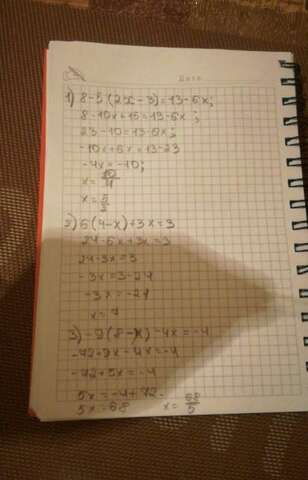 Дата
1) 8-5(2x-3)=13-6x;
8-10x+15=13-6x;
23-10=13-6x;
-10x+6x=13-23
-4x=-10;
x=10/4
x=5/2
2) 6(4-x)+3x=3
24-6x+3x=3
24-3x=3
-3x=3-24
-3x=-21
x=7
3) -9(8-x)-4x=-4
-72+9x-4x=-4
-72+5x=-4
5x=-4+72
5x=68 x=68/5